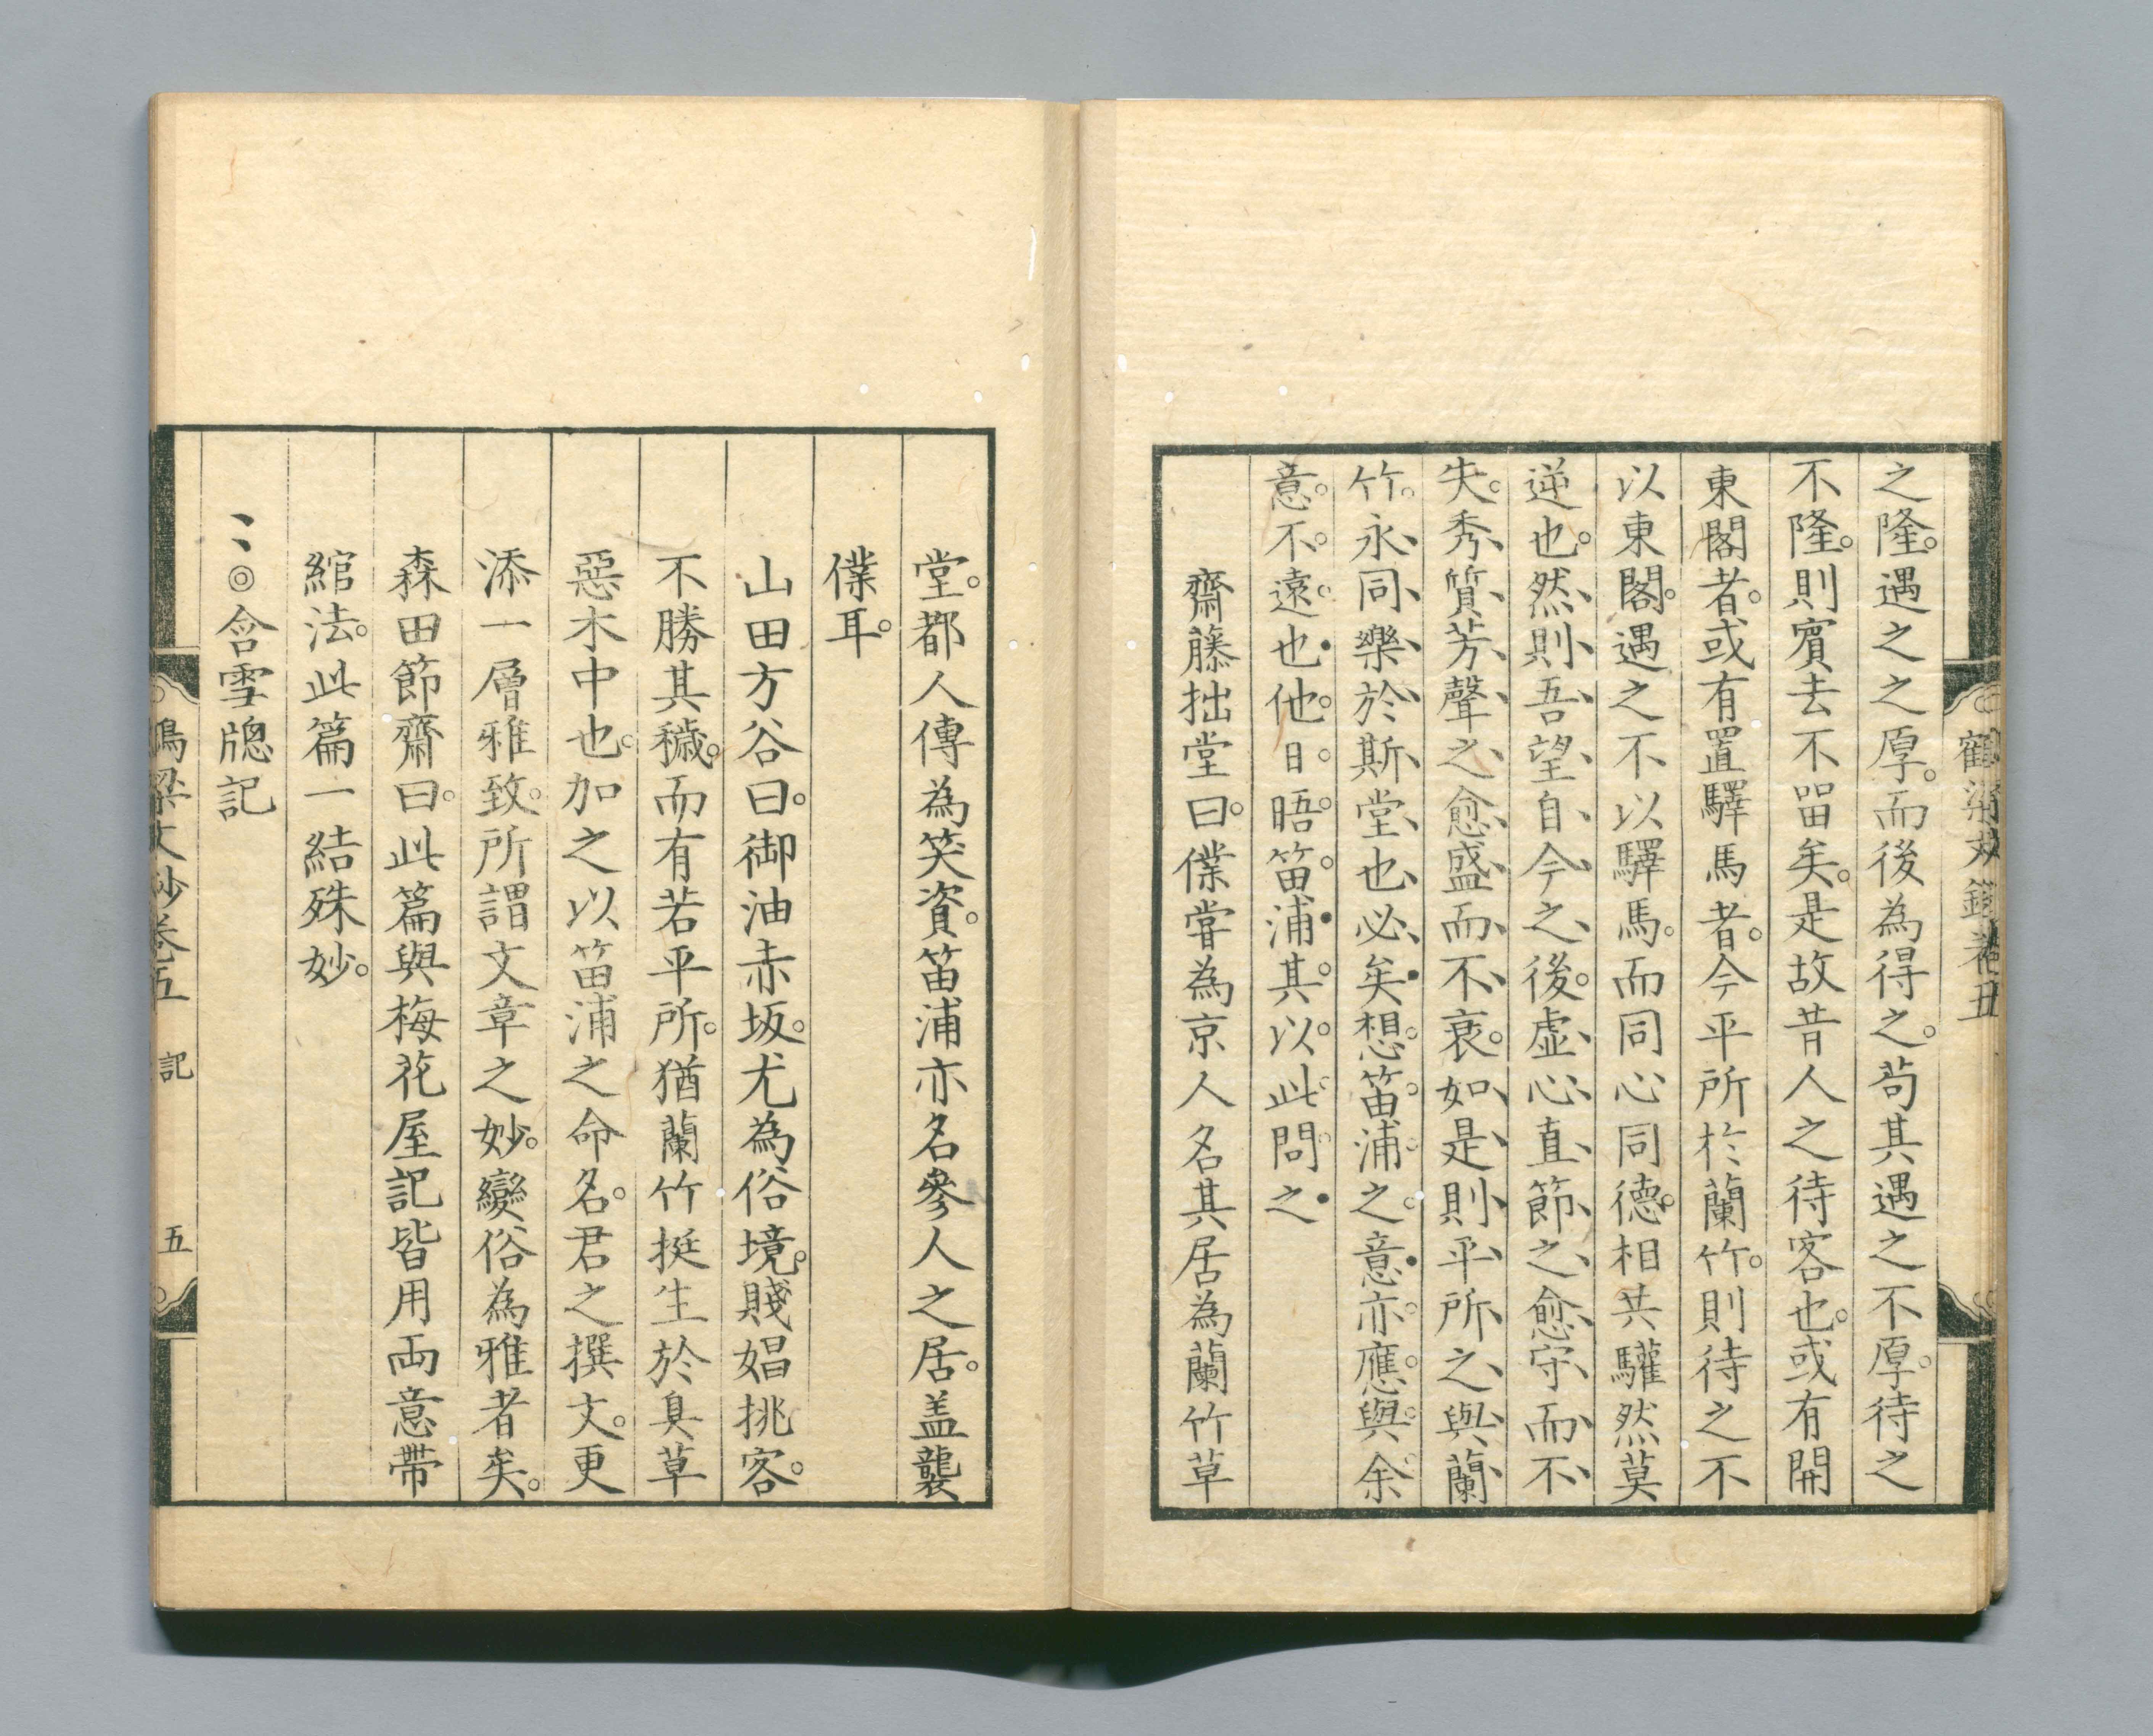 之隆。遇之之厚。而後為得之。苟其遇之不厚。待之
不隆。則賓去不留矣。是故昔人之待客也。或有開
東閣者。或有置驛馬者。今平所於蘭竹。則待之不
以東閣。遇之不以驛馬。而同心同德。相共驩然莫
逆也。然則吾望自今之後。虛心直節之愈守而不
失。秀質芳聲之愈盛而不衰。如是則平所之與蘭
竹。永同樂於斯堂也必矣想笛浦之意亦應與余
意不遠也他日晤笛浦其以此問之
齋藤拙堂曰。僕甞為京人名其居為蘭竹草
堂。都人傳為笑資。笛浦亦名參人之居。盖襲
僕耳。
山田方谷曰。御油赤坂。尤為俗境。賤娼挑客。
不勝其穢。而有若平所。猶蘭竹挺生於臭草
惡木中也。加之以笛浦之命名。君之撰文。更
添一層雅致。所謂文章之妙。變俗為雅者矣。
森田節齋曰。此篇與梅花屋記皆用兩意帶
綰法。此篇一結殊妙。
、、◎含雪牕記
梁文鈔卷五 記 五